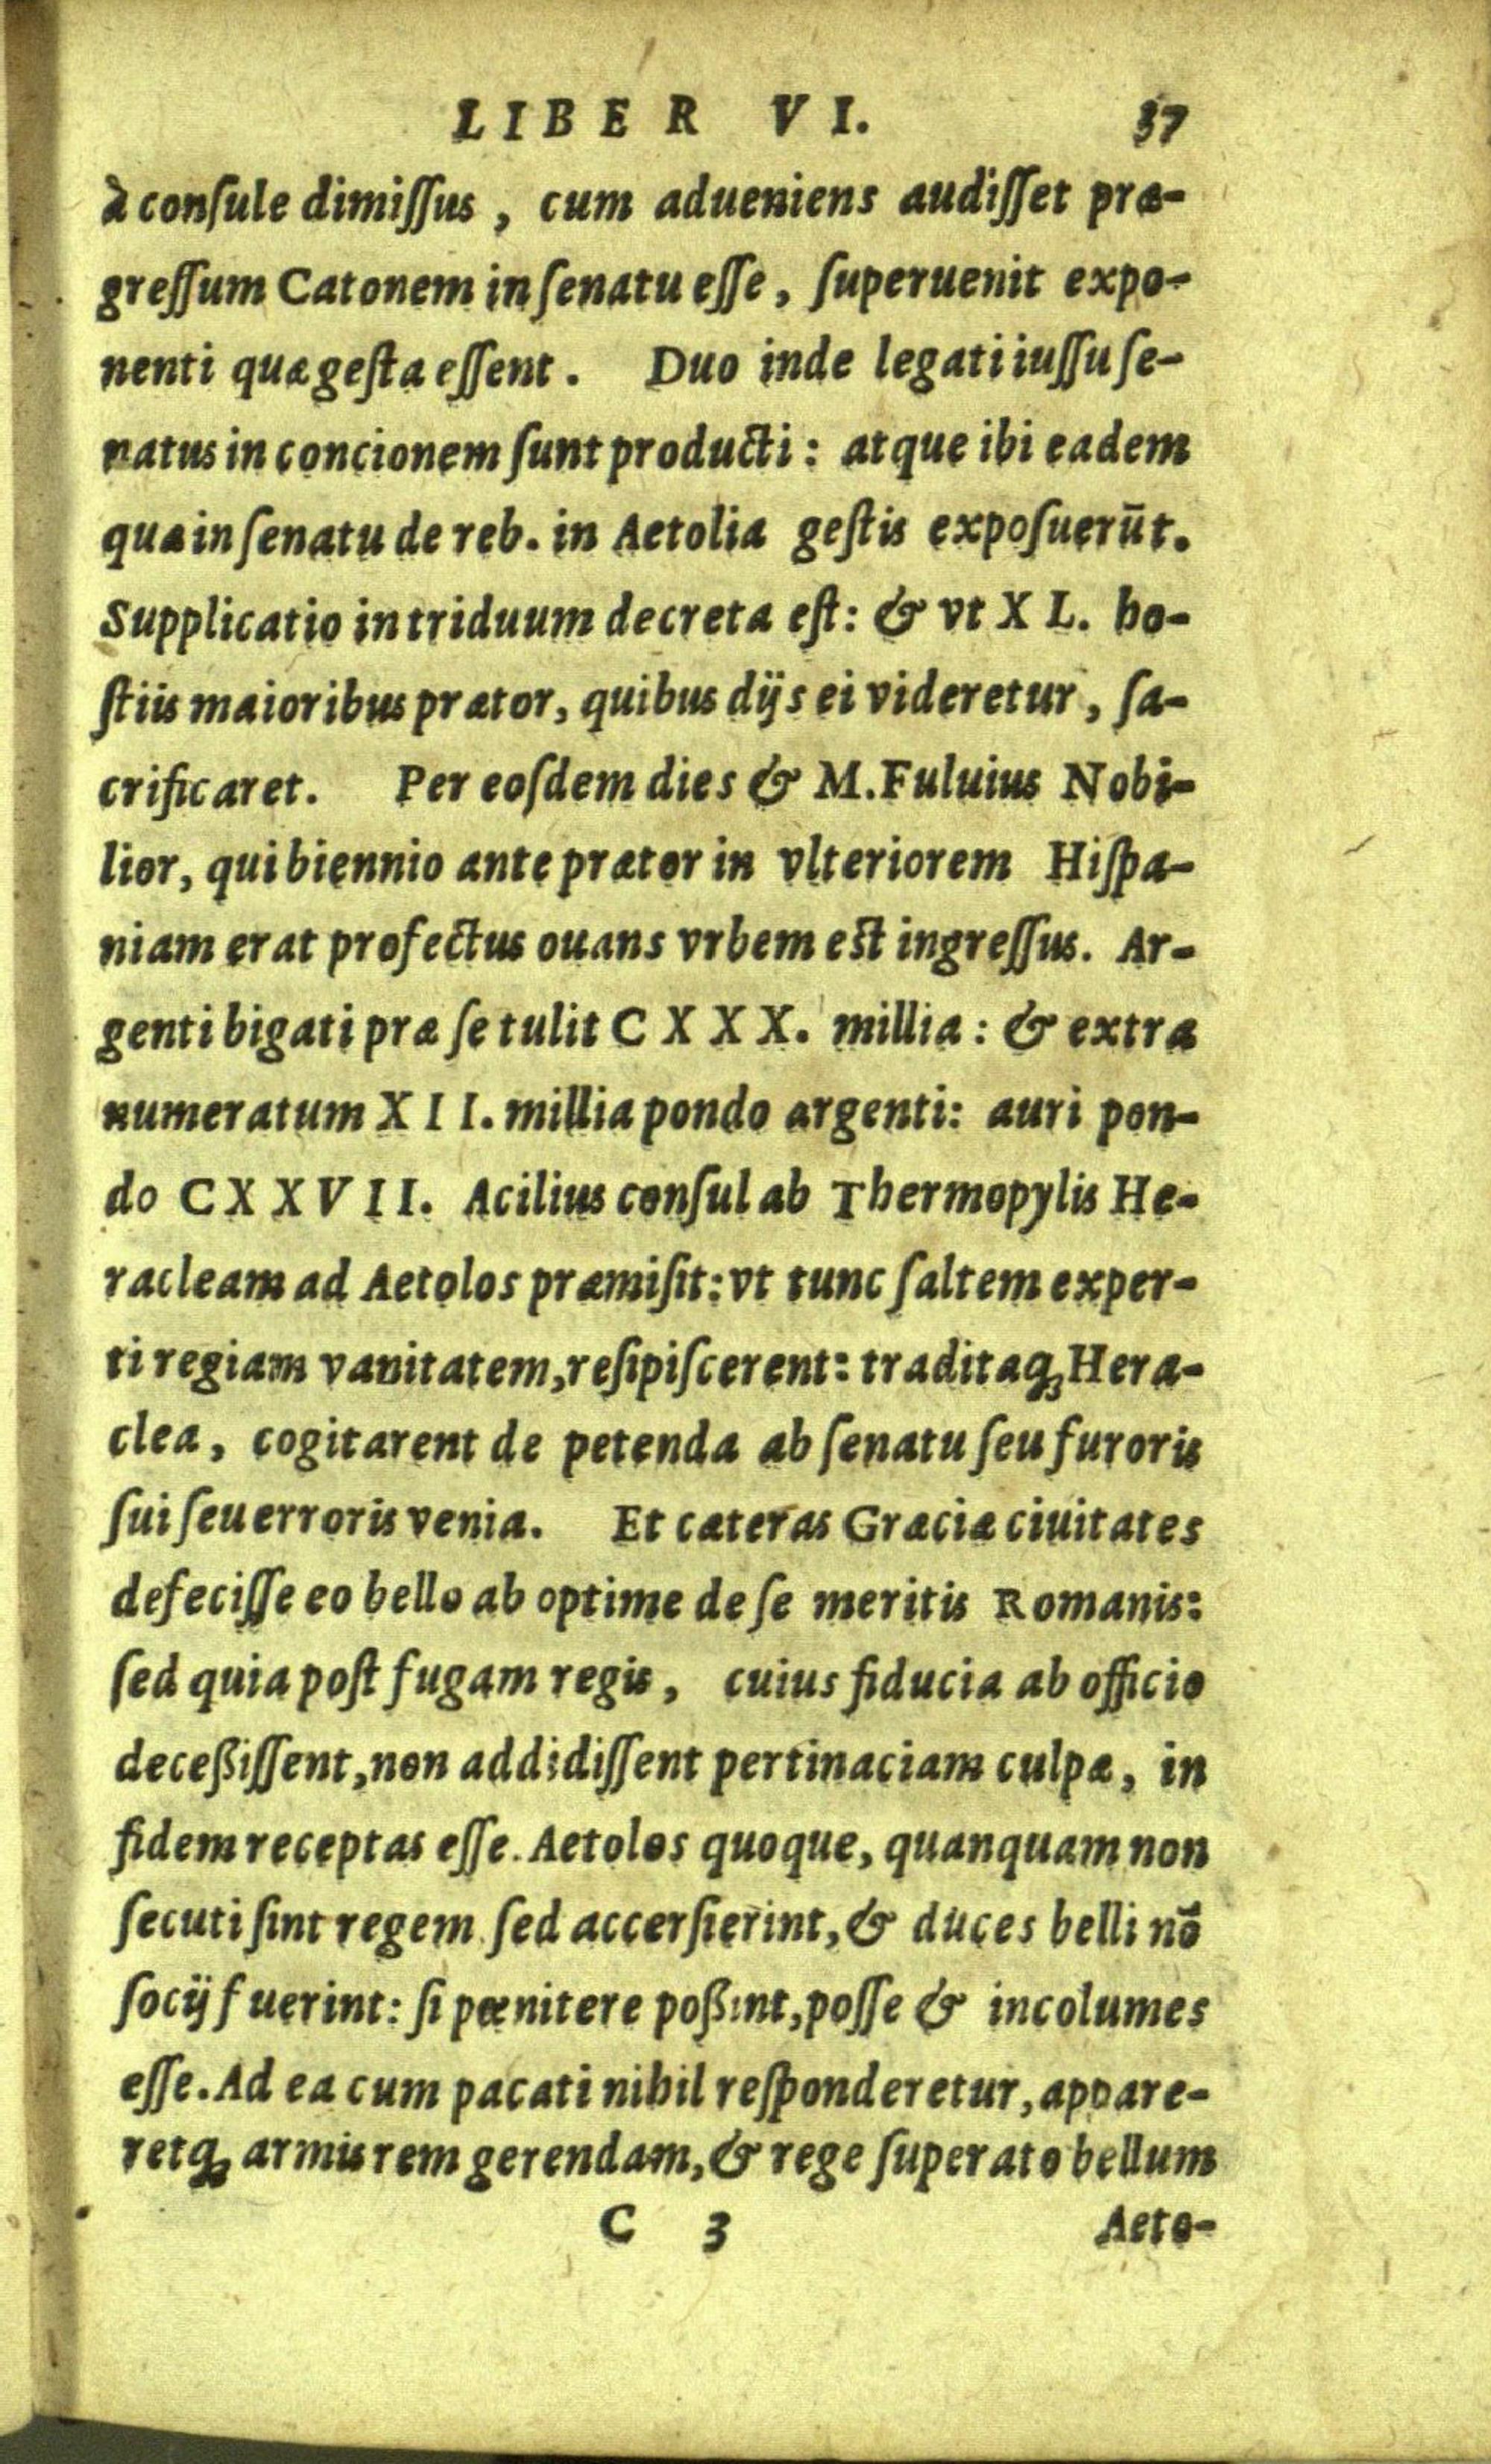 LIBER VI. 37
à conſule dimiſſus, cum adueniens audiſſet præ-
greſſum Catonem in ſenatu eſſe, ſuperuenit expo-
nenti quæ geſta eſſent. Duo inde legati iuſſu ſe-
natus in concionem ſunt producti: atque ibi eadem
quæ in ſenatu de reb. in Aetolia geſtis expoſuerūt.
Supplicatio in triduum decreta eſt: & vt XL. ho-
ſtiis maioribus prætor, quibus dijs ei videretur, ſa-
crificaret. Per eoſdem dies & M. Fuluius Nobi-
lior, qui biennio ante prætor in vlteriorem Hiſpa-
niam erat profectus ouans vrbem eſt ingreſſus. Ar-
genti bigati præ ſe tulit CXXX. millia: & extra
numeratum XII. millia pondo argenti: auri pon-
do CXXVII. Acilius conſul ab Thermopylis He-
racleam ad Aetolos præmiſit: vt tunc ſaltem exper-
ti regiam vanitatem, reſipiſcerent: traditaq; Hera-
clea, cogitarent de petenda ab ſenatu ſeu furoris
ſui ſeu erroris venia. Et cæteras Græciæ ciuitates
defeciſſe eo bello ab optime de ſe meritis Romanis:
ſed quia poſt fugam regis, cuius fiducia ab officio
deceßiſſent, non addidiſſent pertinaciam culpæ, in
fidem receptas eſſe. Aetolos quoque, quanquam non
ſecuti ſint regem ſed accerſierint, & duces belli nō
ſocij fuerint: ſi pœnitere poßint, poſſe & incolumes
eſſe. Ad ea cum pacati nihil reſponderetur, appare-
retq; armis rem gerendam, & rege ſuperato bellum
C 3 Aeto-